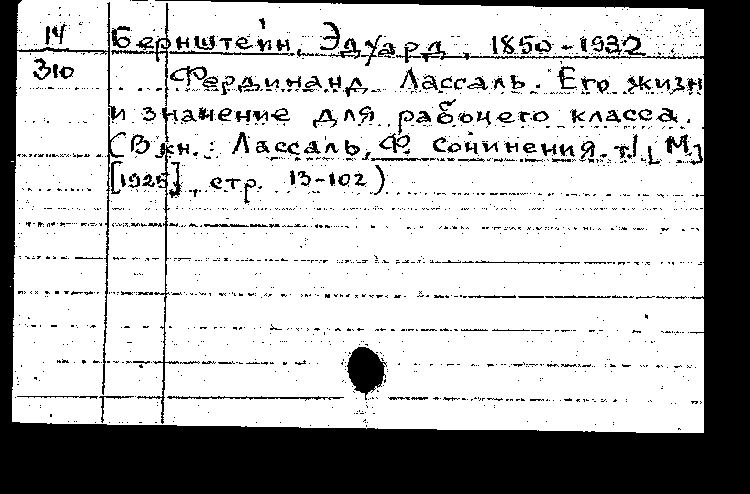 14 Бернштейн, Эдуард, 1850-1932
310 Фердинанд Лассаль. Его жизн
и значение для рабочего класса.
(В кн.: Лассаль, Ф. Сочинения. т.I. [М]
[1925], стр. 13-102)